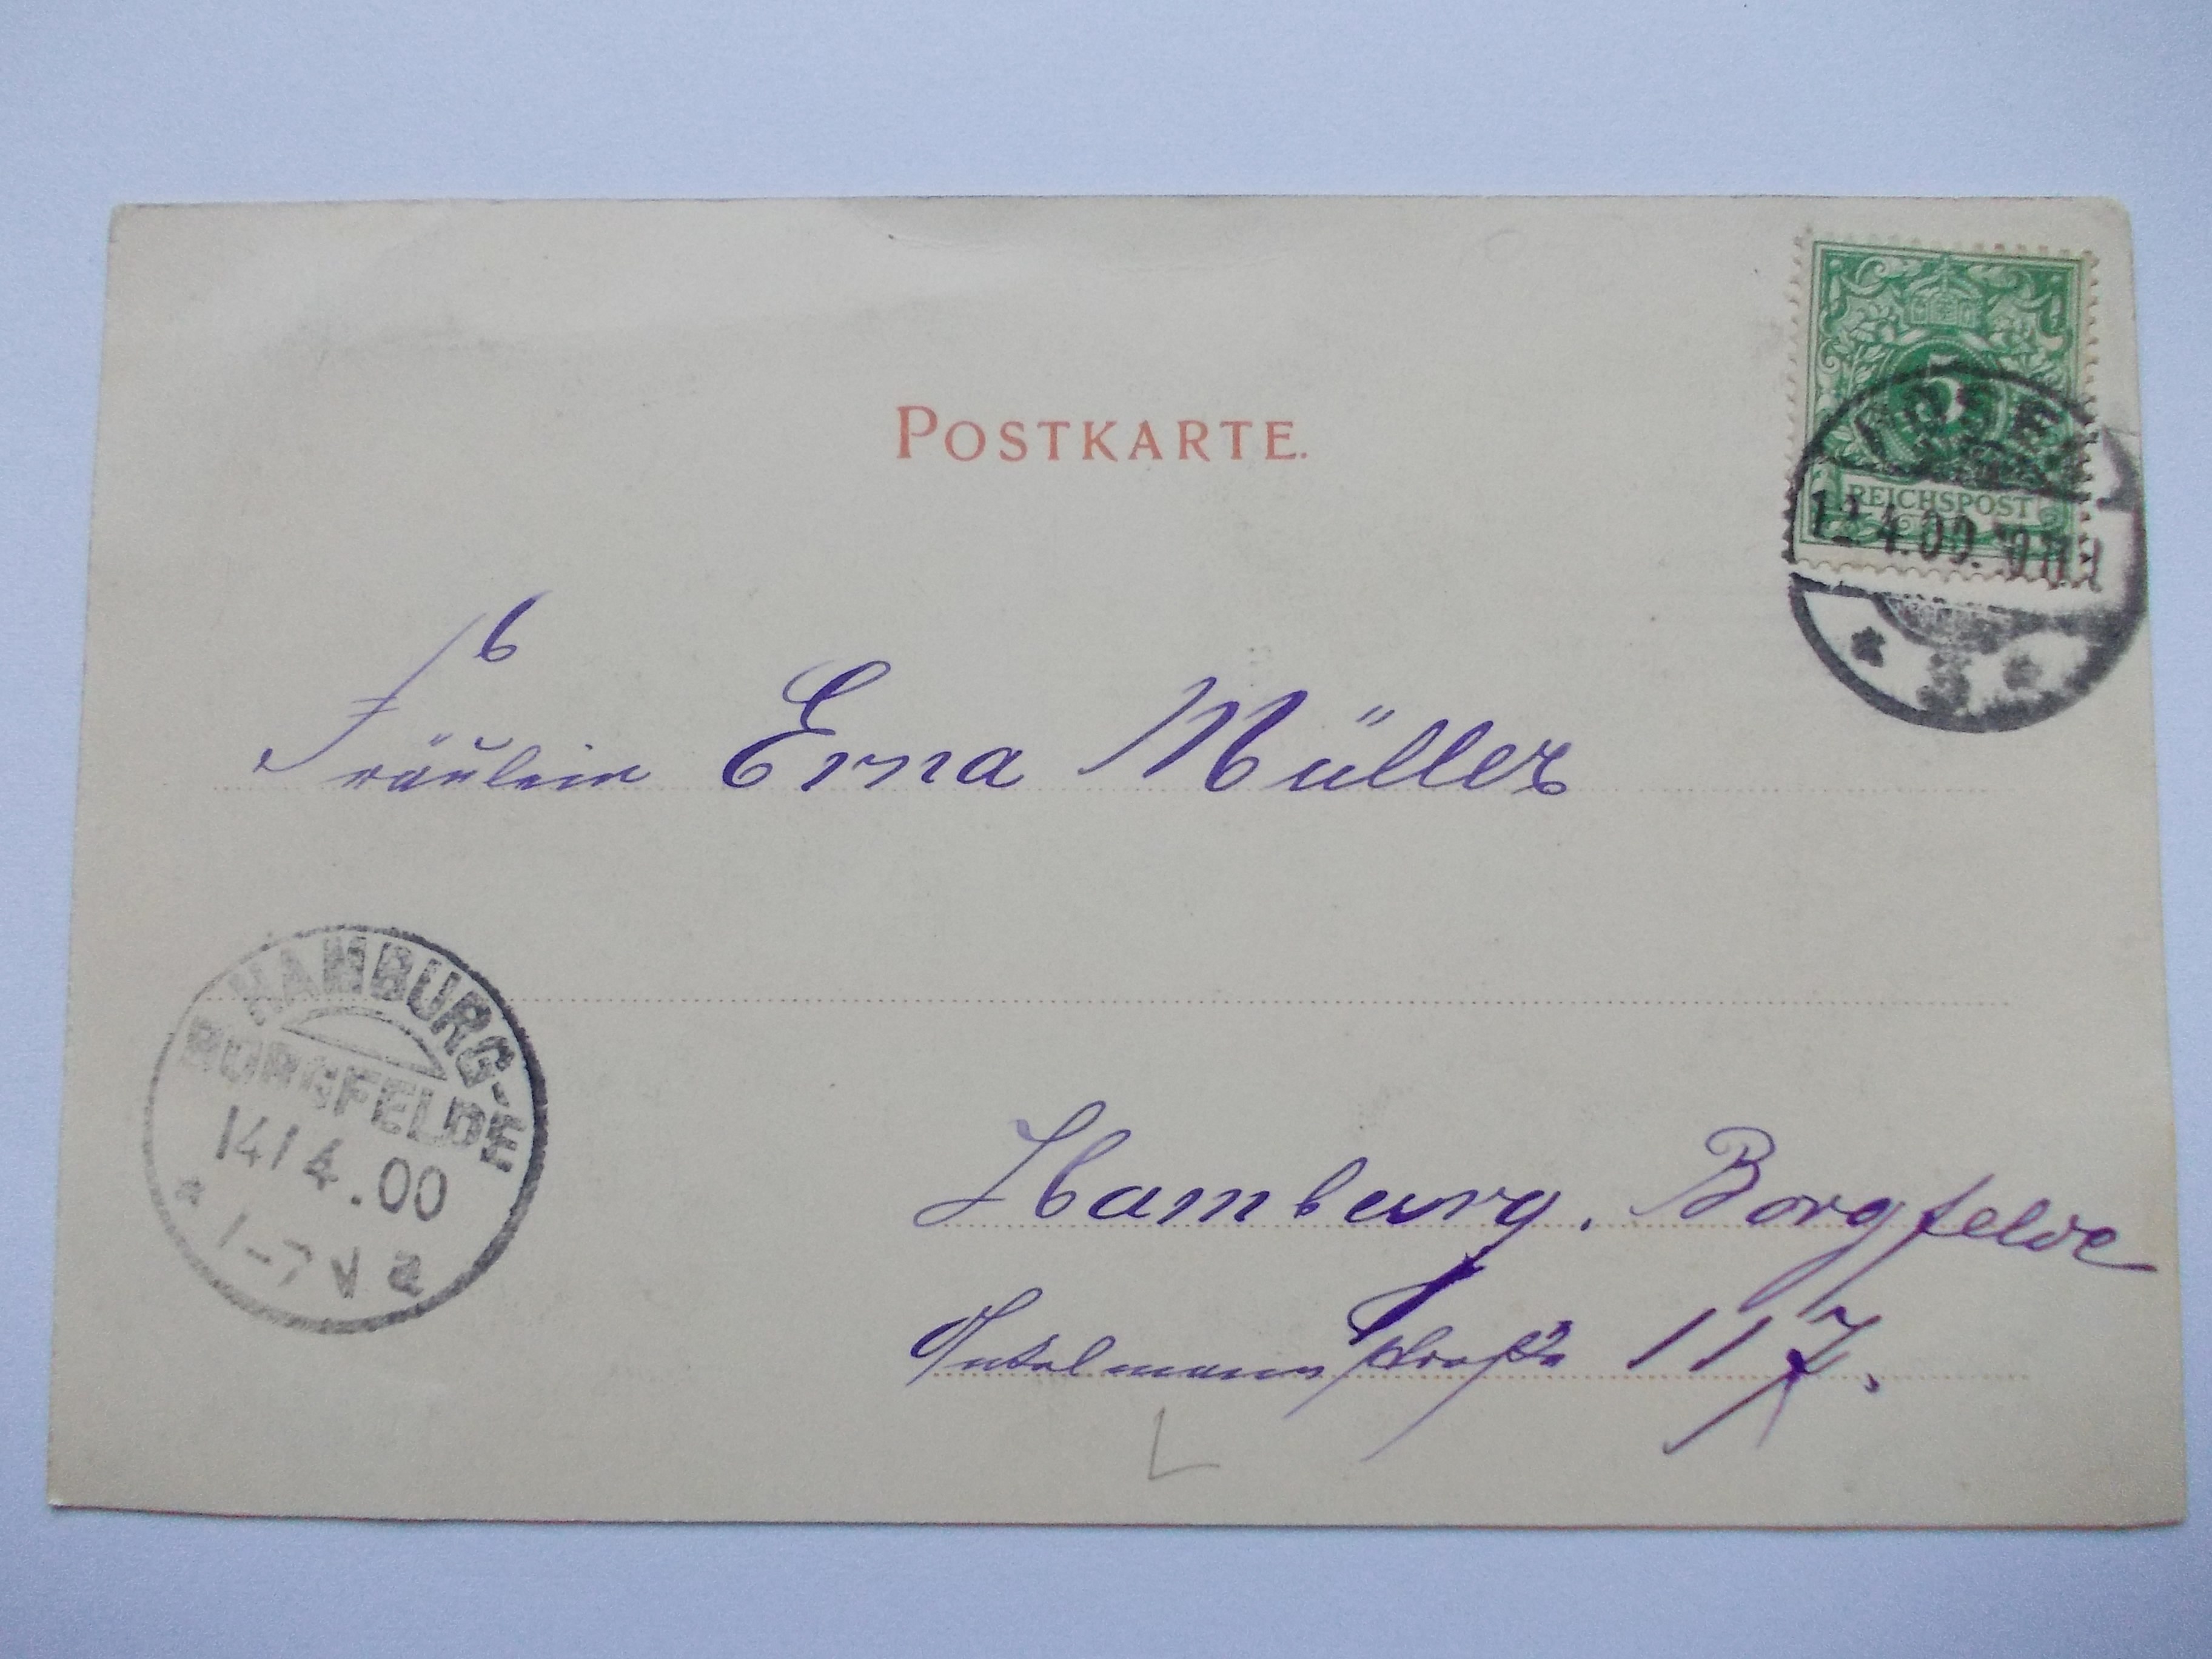 POSTKARTE.
5
POSEN
REICHSPOST
12.4.00.
6
Fräulein Erna Müller
HAMBURG-
BORGFELDE
14/4.00
* 1-7 V a
Hamburg. Borgfelde
117.